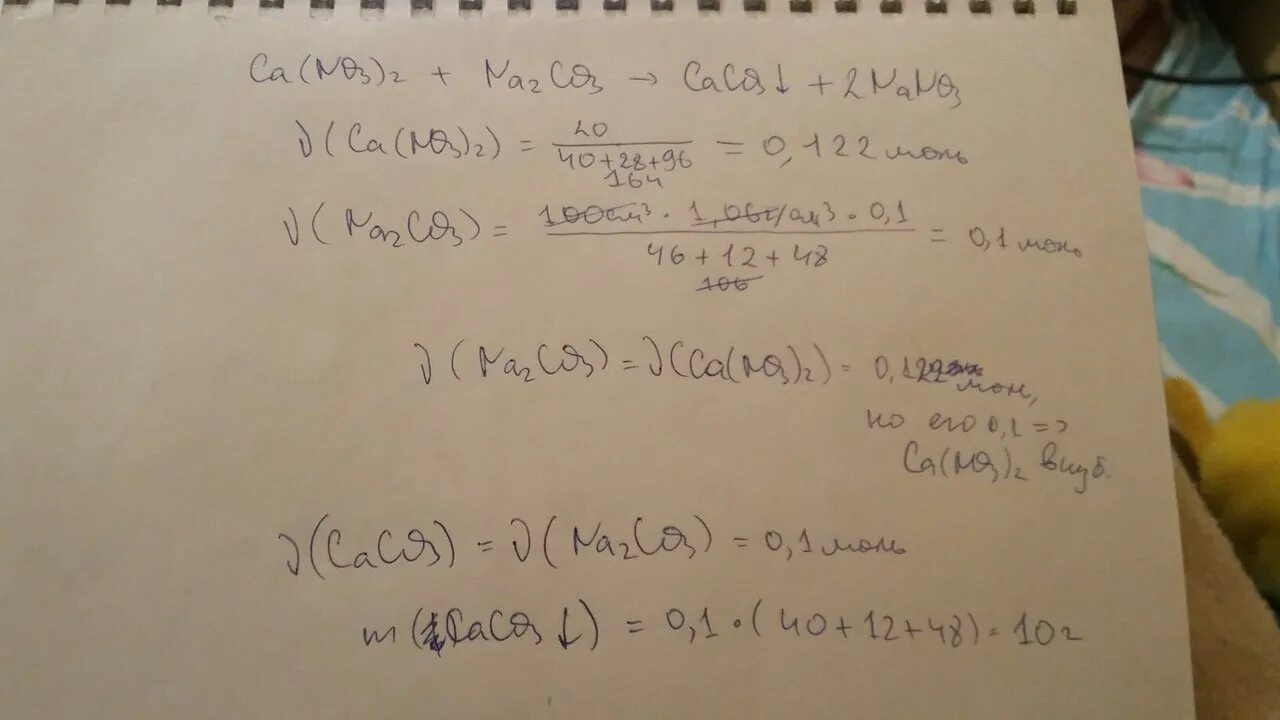 Ca(NO3)2 + Na2CO3 → CaCO3↓ + 2NaNO3
ν(Ca(NO3)2) = 20 / 40+28+96 = 0,122 моль
164
ν(Na2CO3) = 100см³ · 1,06г/см³ · 0,1 / 46+12+48 = 0,1 моль
106
ν(Na2CO3) = ν(Ca(NO3)2) = 0,122
моль,
но его 0,1 =>
Ca(NO3)2 в изб.
ν(CaCO3) = ν(Na2CO3) = 0,1 моль
m(CaCO3↓) = 0,1 · (40+12+48) = 10 г